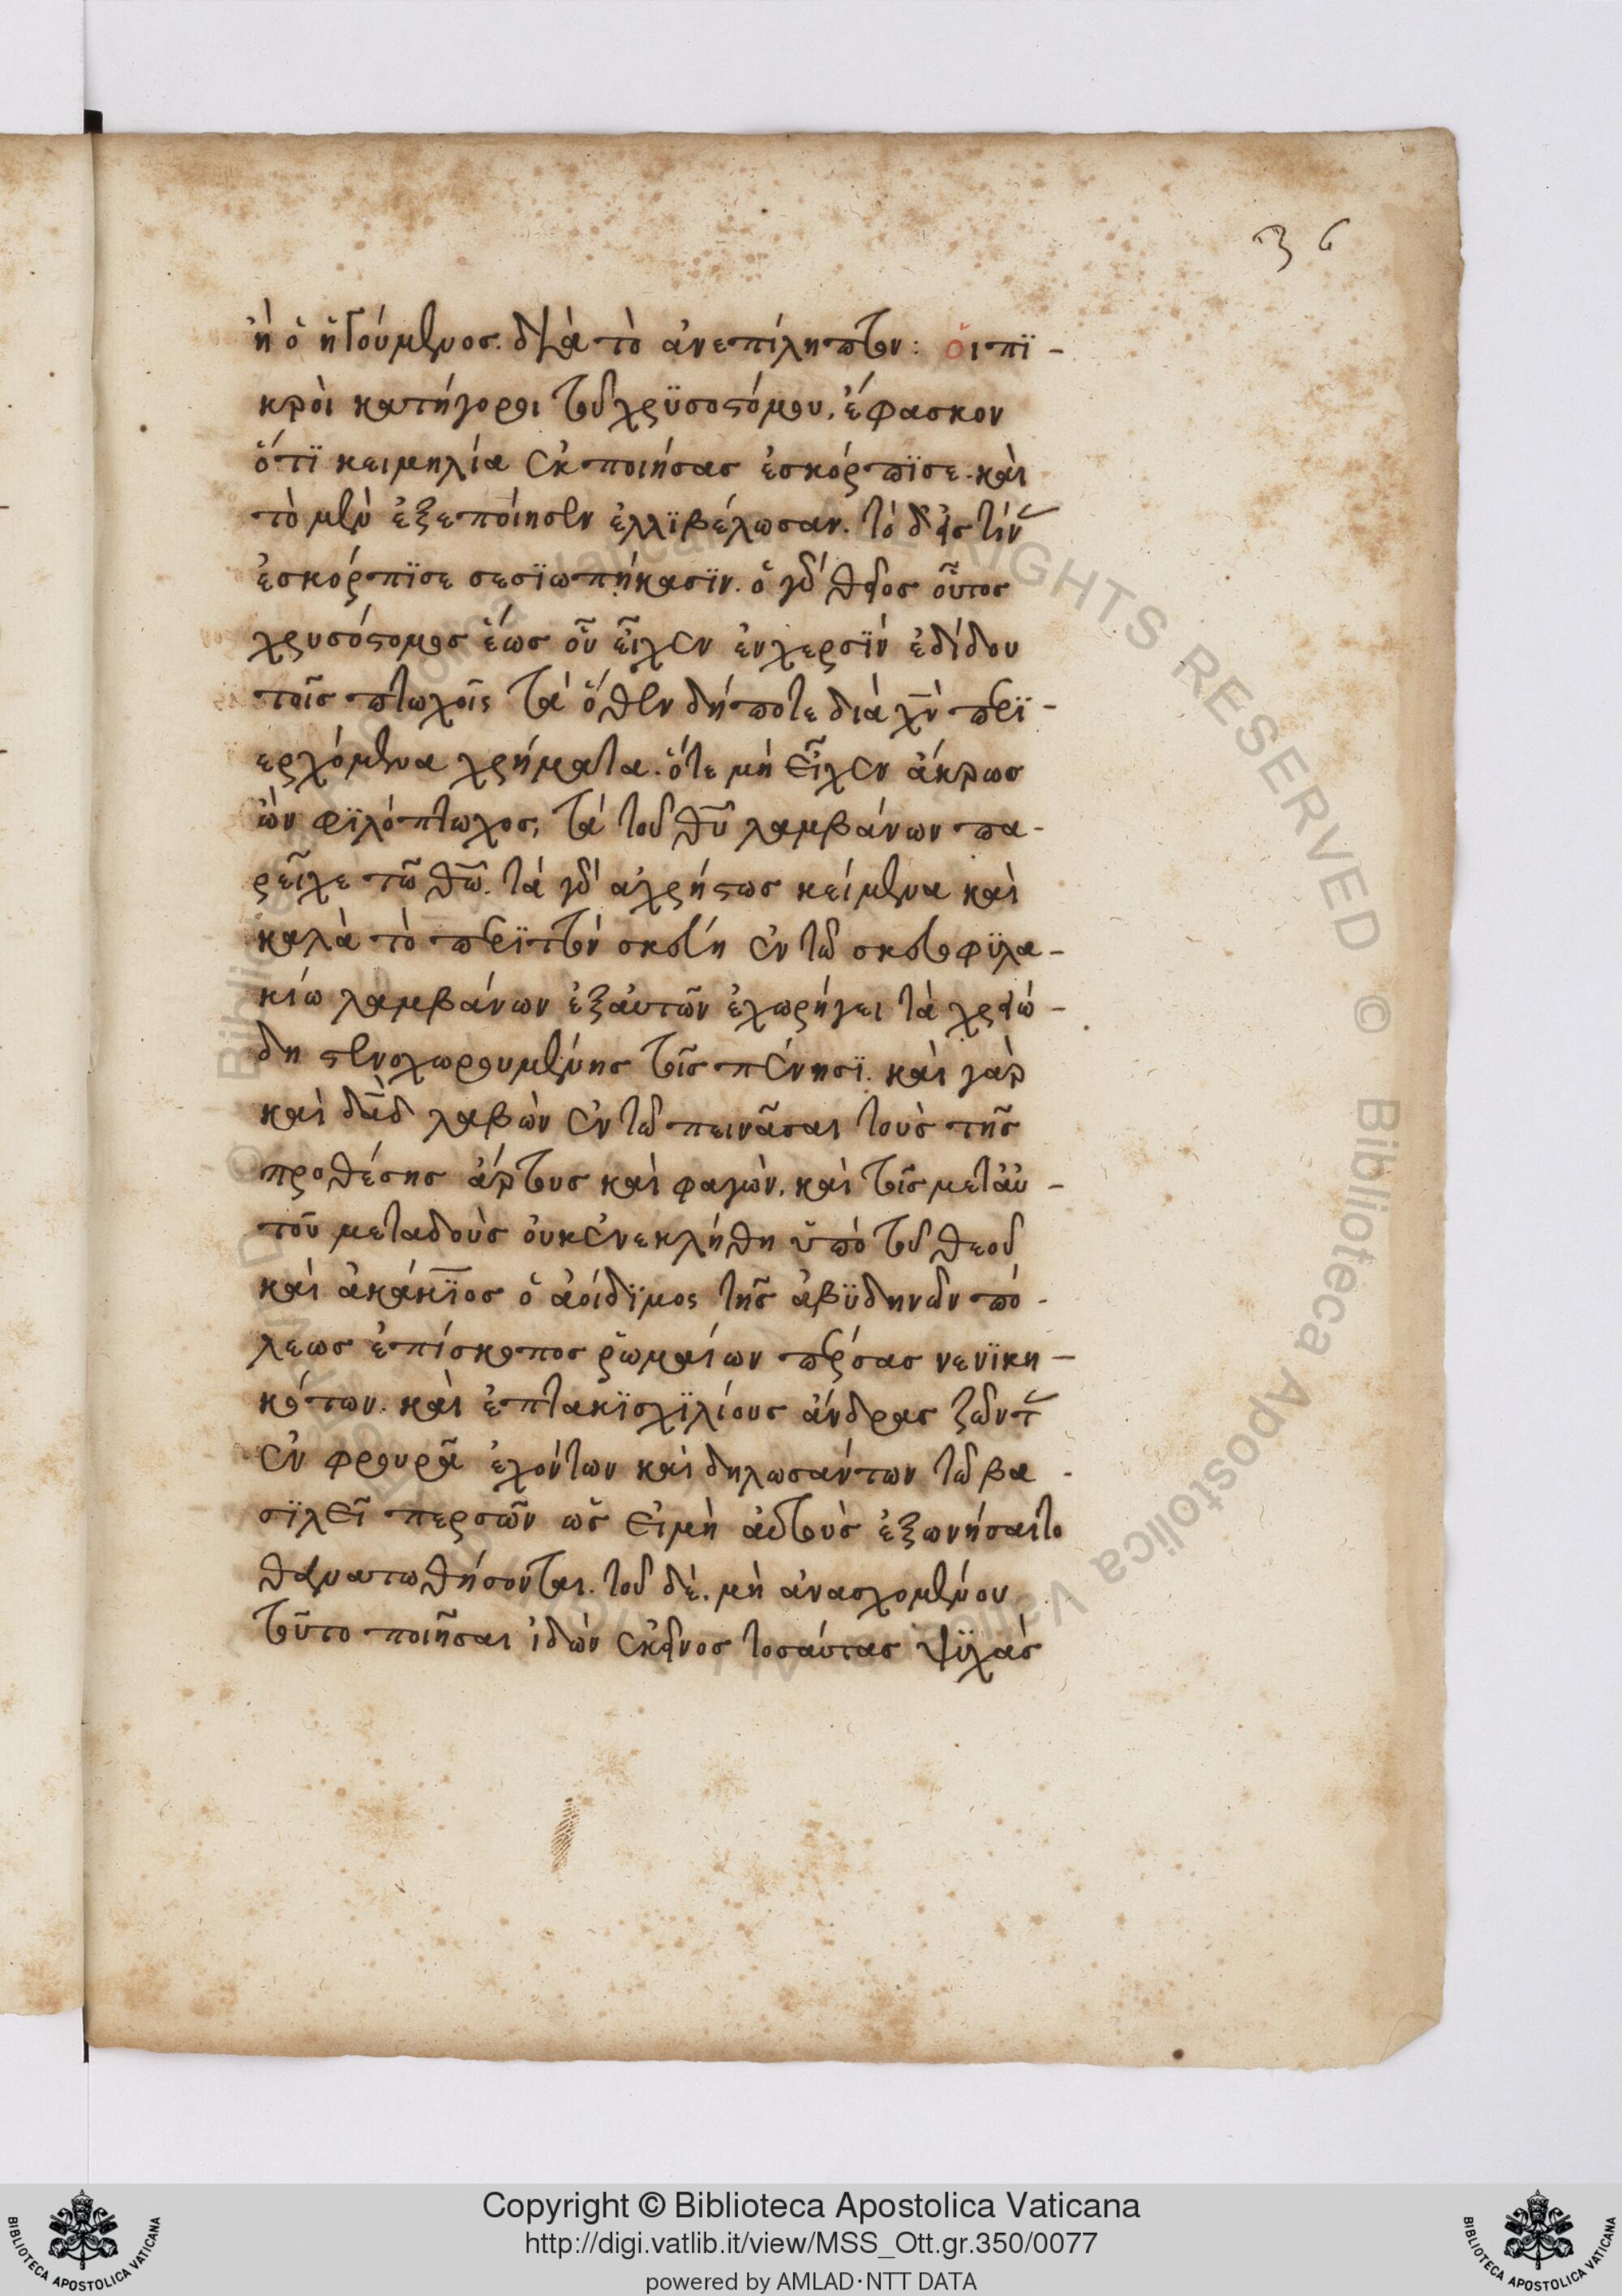 36
ἢ ὁ ἡγούμενος. διὰ τὸ ἀνεπίληπτον: Οἱ πϊ-
κροὶ κατήγοροι τοῦ χρϋσοστόμου, ἔφασκον
ὅτϊ κειμηλία ἐκποιήσας ἐσκόρπϊσε. καὶ
τὸ μὲν ἐξεποίησεν ἐλλϊβέλωσαν. τὸ δ' ἐς τίν
ἐσκόρπϊσε σεσϊωπήκασϊν. ὁ γὰρ θεῖος οὗτος
χρυσόστομος ἕως οὗ εἶχεν ἐν χερσϊν ἐδίδου
τοῖς πτωχοῖς τὰ ὅθεν δήποτε διὰ χν πρϊ-
ερχόμενα χρήματα. ὅτε μὴ εἶχεν ἄκρως
ὢν φϊλόπτωχος, τὰ τοῦ θυ λαμβάνων πα-
ρεῖχε τῶ θω. τὰ γὰρ ἀχρήστως κείμενα καὶ
κατὰ τὸ πρϊττὸν σκεύη ἐν τῶ σκευοφϋλα-
κίω λαμβάνων ἐξ αὐτῶν ἐχωρήγει τὰ χρειώ-
δη στενοχωρουμένης τοῖς πένησϊ. καὶ γὰρ
καὶ δαδ λαβὼν ἐν τῶ πεινᾶσαι τοὺς τῆς
προθέσης ἄρτους καὶ φαγὼν, καὶ τοῖς μετ' αὐ-
τοῦ μεταδοὺς οὐκ ἐνεκλήθη ὑπὸ τοῦ θεοῦ
καὶ ἀκάκϊος ὁ ἀοίδϊμος τῆς ἀβϋδηνῶν πό-
λεως ἐπίσκοπος ῥωμαίων πέρσας νενϊκη-
κότων. καὶ ἑπτακϊσχϊλίους ἄνδρας ζῶντ
ἐν φρουρᾶ ἐχόντων καὶ δηλωσάντων τῶ βα-
σϊλεῖ περσῶν ὡς εἰ μὴ αὐτοὺς ἐξωνήσαιτο
θανατωθήσονται. τοῦ δὲ. μὴ ἀνασχομένου
τοῦτο ποιῆσαι ἰδὼν ἐκεῖνος τοσαύτας ψϋχὰς
Copyright © Biblioteca Apostolica Vaticana
http://digi.vatlib.it/view/MSS_Ott.gr.350/0077
powered by AMLAD·NTT DATA